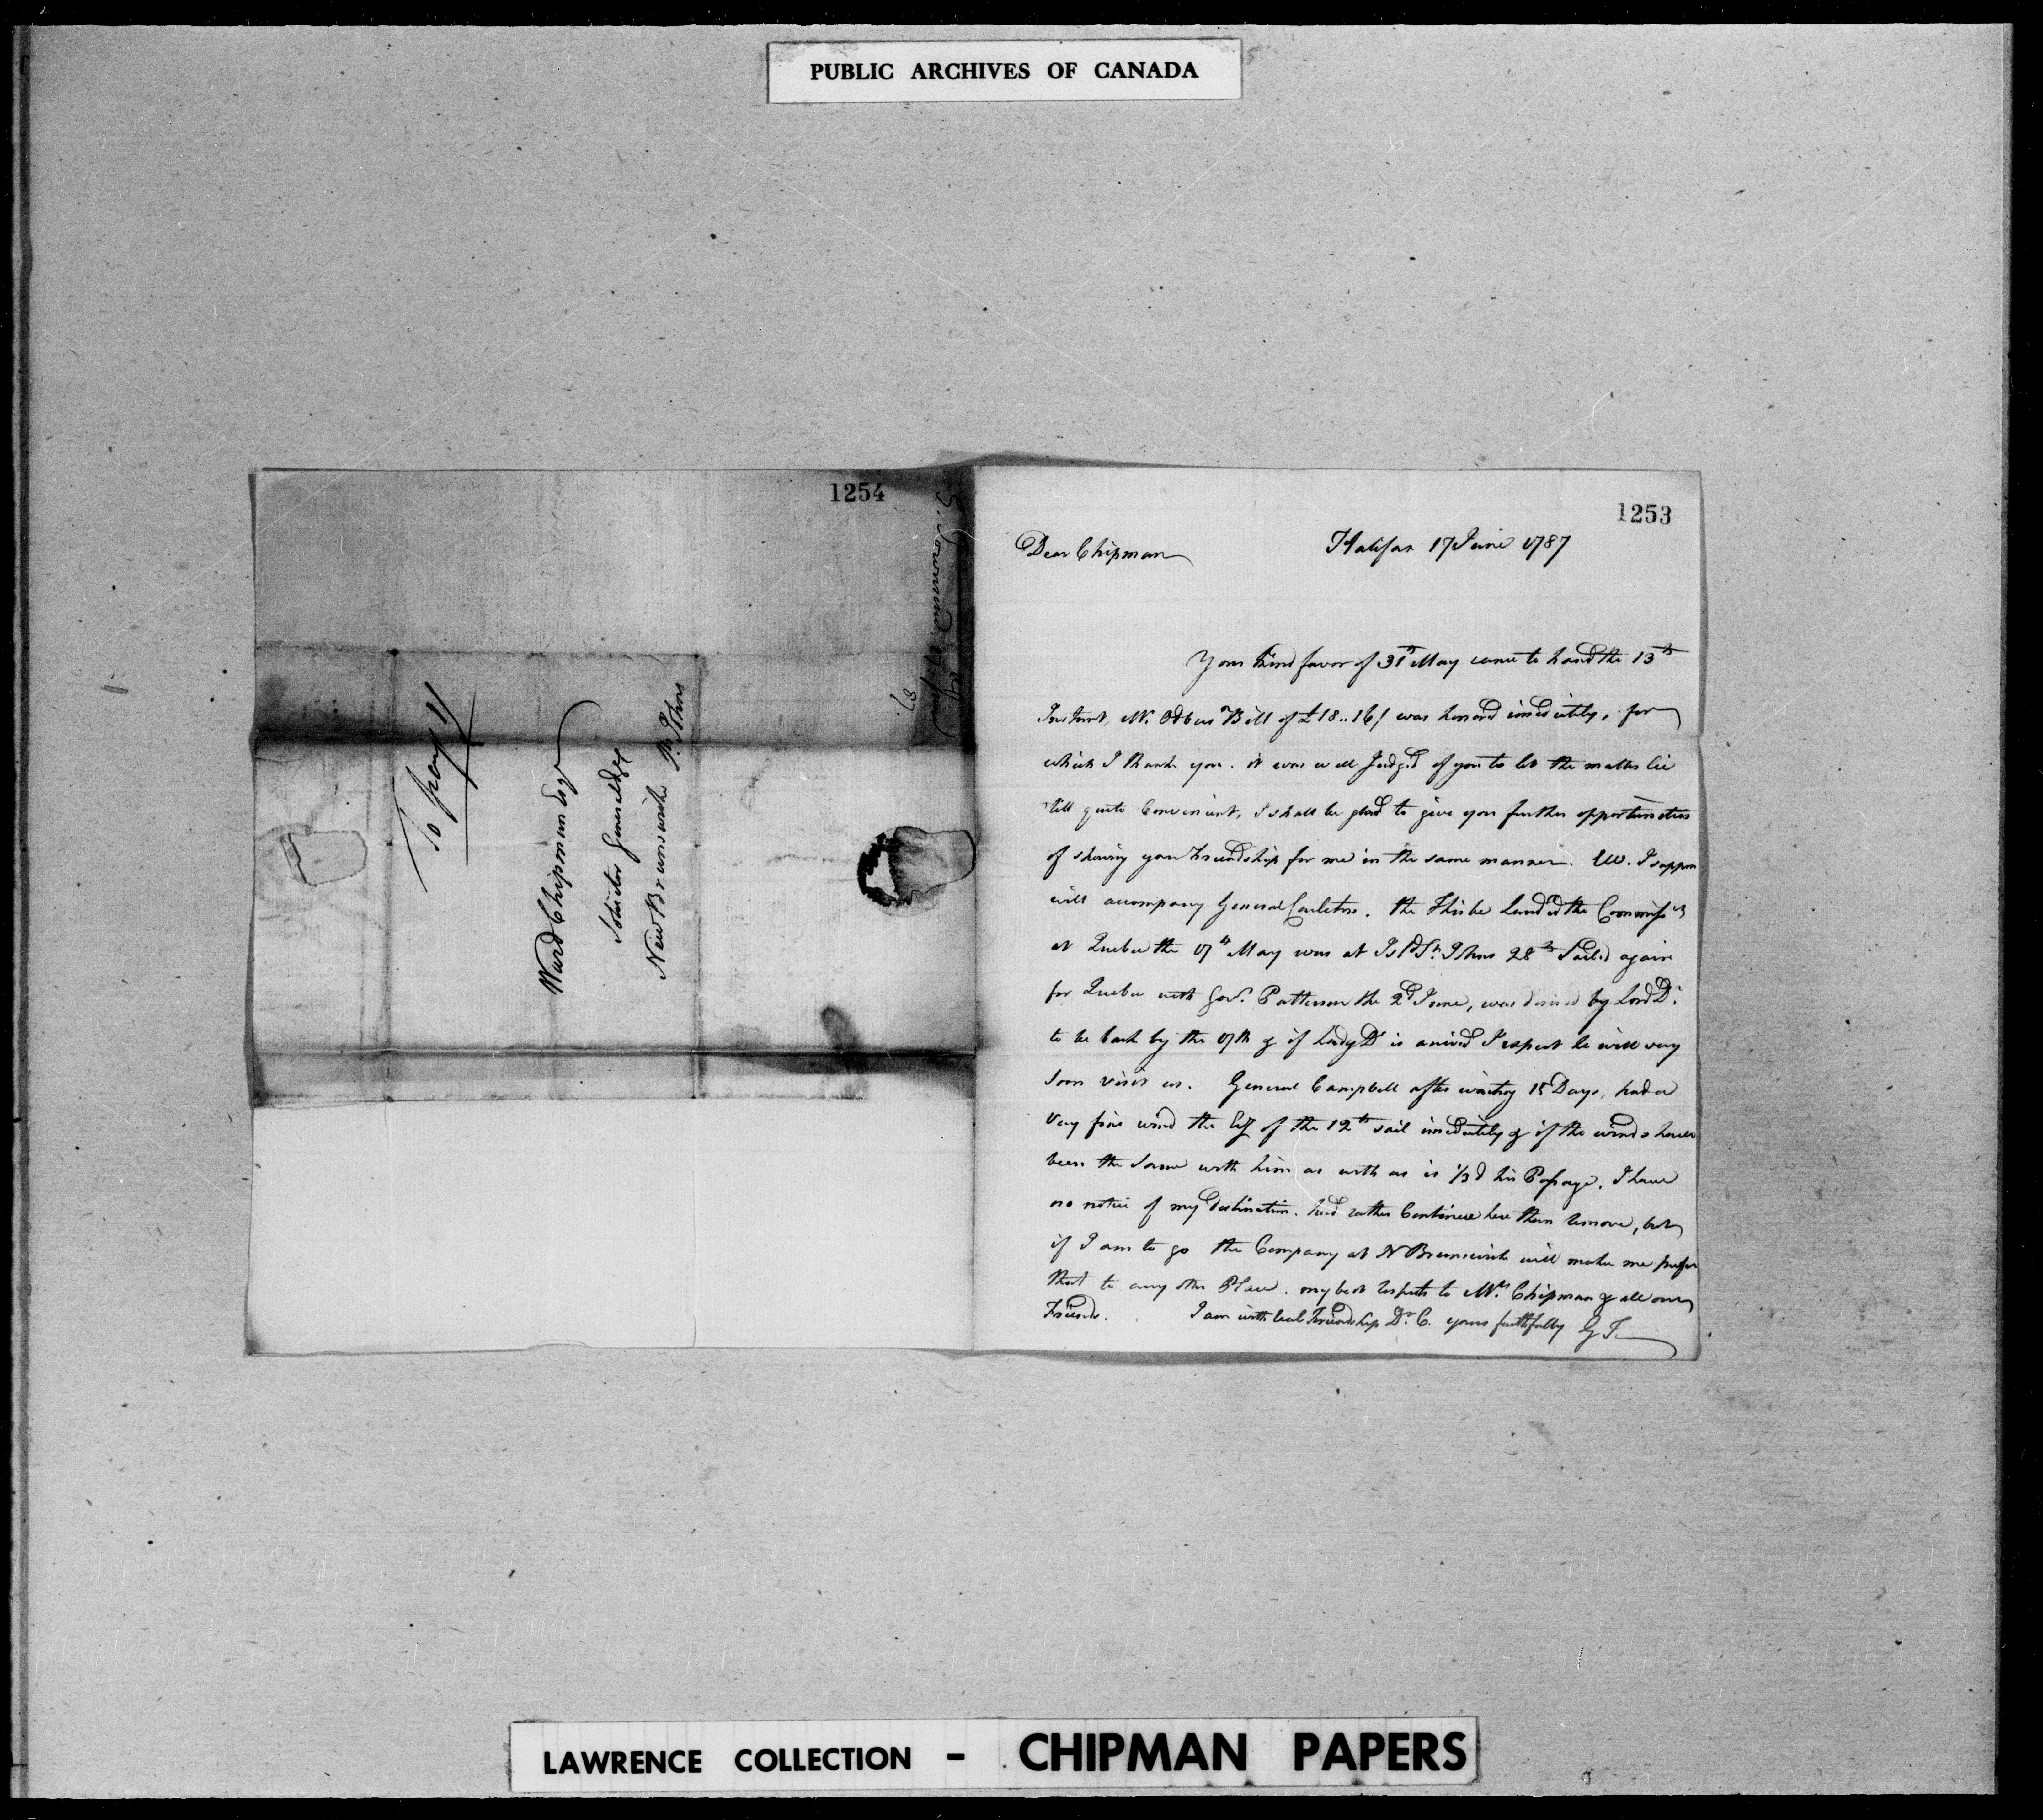 PUBLIC ARCHIVES OF CANADA
1254
To pay 11
Ward Chipman Esqr
Solicitor General &c
New Brunswick St. Johns
G. Townsend 17 June
87.
1253
Dear Chipman
Halifax 17 June 1787
Your kind favor of 31st May came to hand the 13th
Instant, Mr. Bill of £18..16/ was honord imediately, for
which I thank you. it was well Judged of you to let the matter lie
till quite Convenient, I shall be glad to give you further opportunities
of shewing your Friendship for me in the same manner. W. I suppose
will accompany General Carleton. the Thisbe Landed the Commissrs
at Quebec the 17th May was at Isld St. Johns 28th Sailed again
for Quebec with Govr. Patterson the 2d June, was desired by Lord Dr.
to be back by the 17th & if Lady Dr is arrived I expect he will very
soon visit us. General Campbell after waiting 15 Days, had a
very fine wind the Eg of the 12th sail imediately & if the winds have
been the same with him as with us is 1/3d his Passage. I have
no notice of my destination. had rather Continue here than remove, but
if I am to go the Company at N Brunswick will make me prefer
that to any other Place. my best respects to Mrs. Chipman & all our
Friends. I am with real Friendship Dr. C. yours faithfully G T
LAWRENCE COLLECTION - CHIPMAN PAPERS